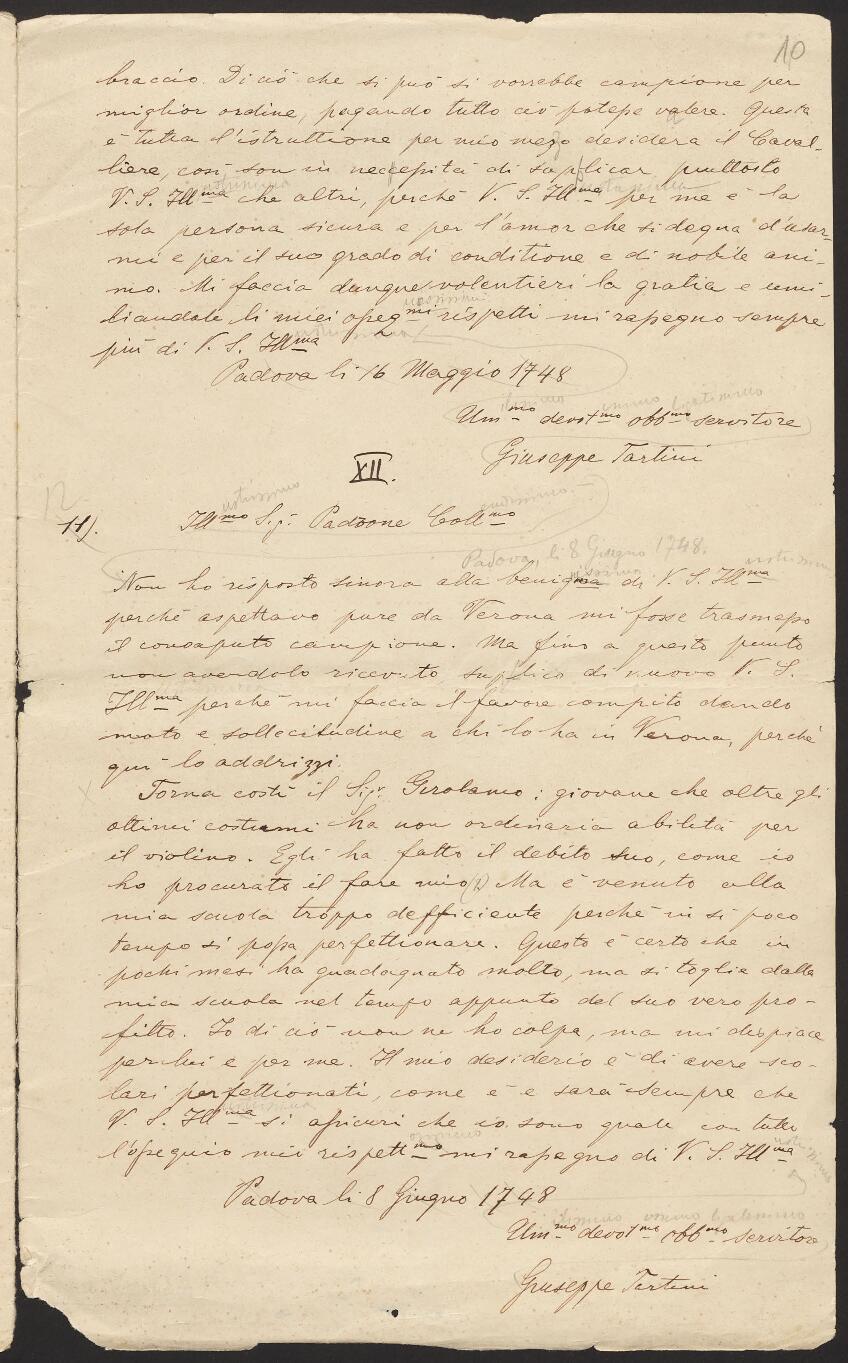 10
braccio. Di ciò che si può si vorrebbe campione per
miglior ordine, pagando tutto ciò potesse valere. Questa
è tutta l'istruttione per mio mezo desidera il Caval-
liere, così son in necessità di suplicar piuttosto
V. S. Illma che altri, perchè V. S. Illma per me è la
sola persona sicura e per l'amor che si degna d'usar-
mi e per il suo grado di conditione e di nobile ani-
mo. Mi faccia dunque volentieri la gratia e umi-
liandole li miei osseqmi rispetti mi rassegno sempre
più di V. S. Illma
Padova li 16 Maggio 1748
Ummo devotmo obbmo servitore
Giuseppe Tartini
XII.
12
11). Illmo Sigr. Padrone Collmo
Padova, li 8 Giugno 1748.
Non ho risposto sinora alla benigma di V. S. Illma
perchè aspettavo pure da Verona mi fosse trasmesso
il consaputo campione. Ma fino a questo punto
non avendolo ricevuto, suplico di nuovo V. S.
Illma perchè mi faccia il favore compito dando
moto e sollecitudine a chi lo ha in Verona, perchè
qui lo addrizzi.
Torna costì il Sigr. Girolamo; giovane che oltre gli
ottimi costumi ha non ordinaria abilità per
il violino. Egli ha fatto il debito suo, come io
ho procurato il fare mio (1) Ma è venuto alla
mia scuola troppo defficiente perchè in sì poco
tempo si possa perfettionare. Questo è certo che in
pochi mesi ha guadagnato molto, ma si toglie dalla
mia scuola nel tempo appunto del suo vero pro-
fitto. Io di ciò non ne ho colpa, ma mi dispiace
per lui e per me. Il mio desiderio è di avere sco-
lari perfettionati, come è e sarà sempre che
V. S. Illma si assicuri che io sono quale con tutto
l'ossequio mio rispettmo mi rassegno di V. S. Illma
Padova li 8 Giugno 1748
Ummo devotmo obbmo servitore
Giuseppe Tartini